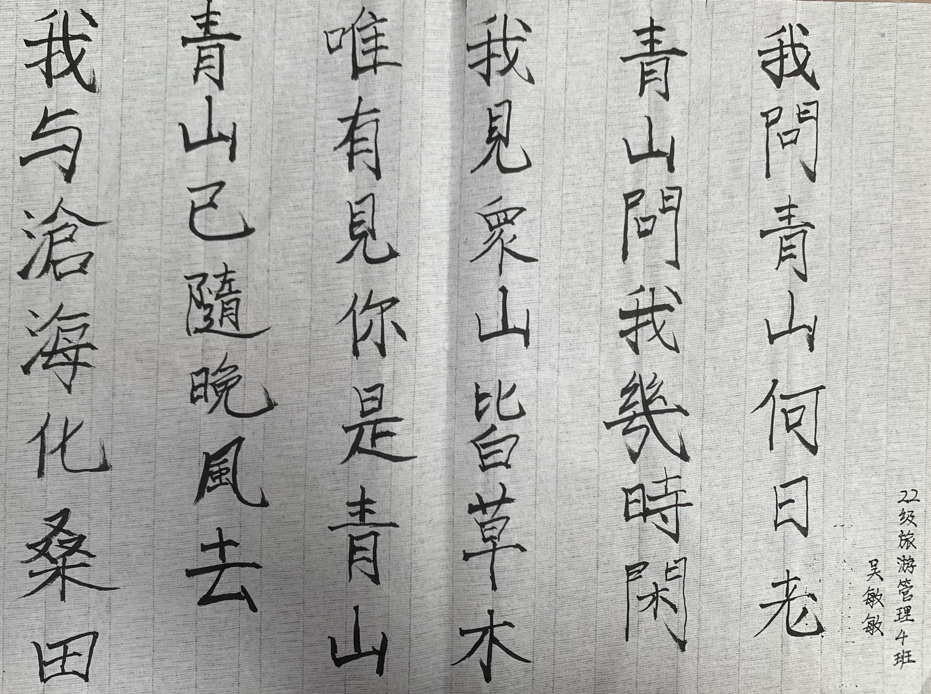 22级旅游管理4班
吴敏敏
我問青山何日老
青山問我幾時閑
我見衆山皆草木
唯有見你是青山
青山已隨晚風去
我与滄海化桑田